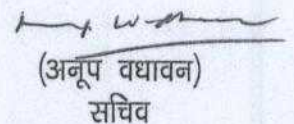 (अनूप वधावन)
सचिव